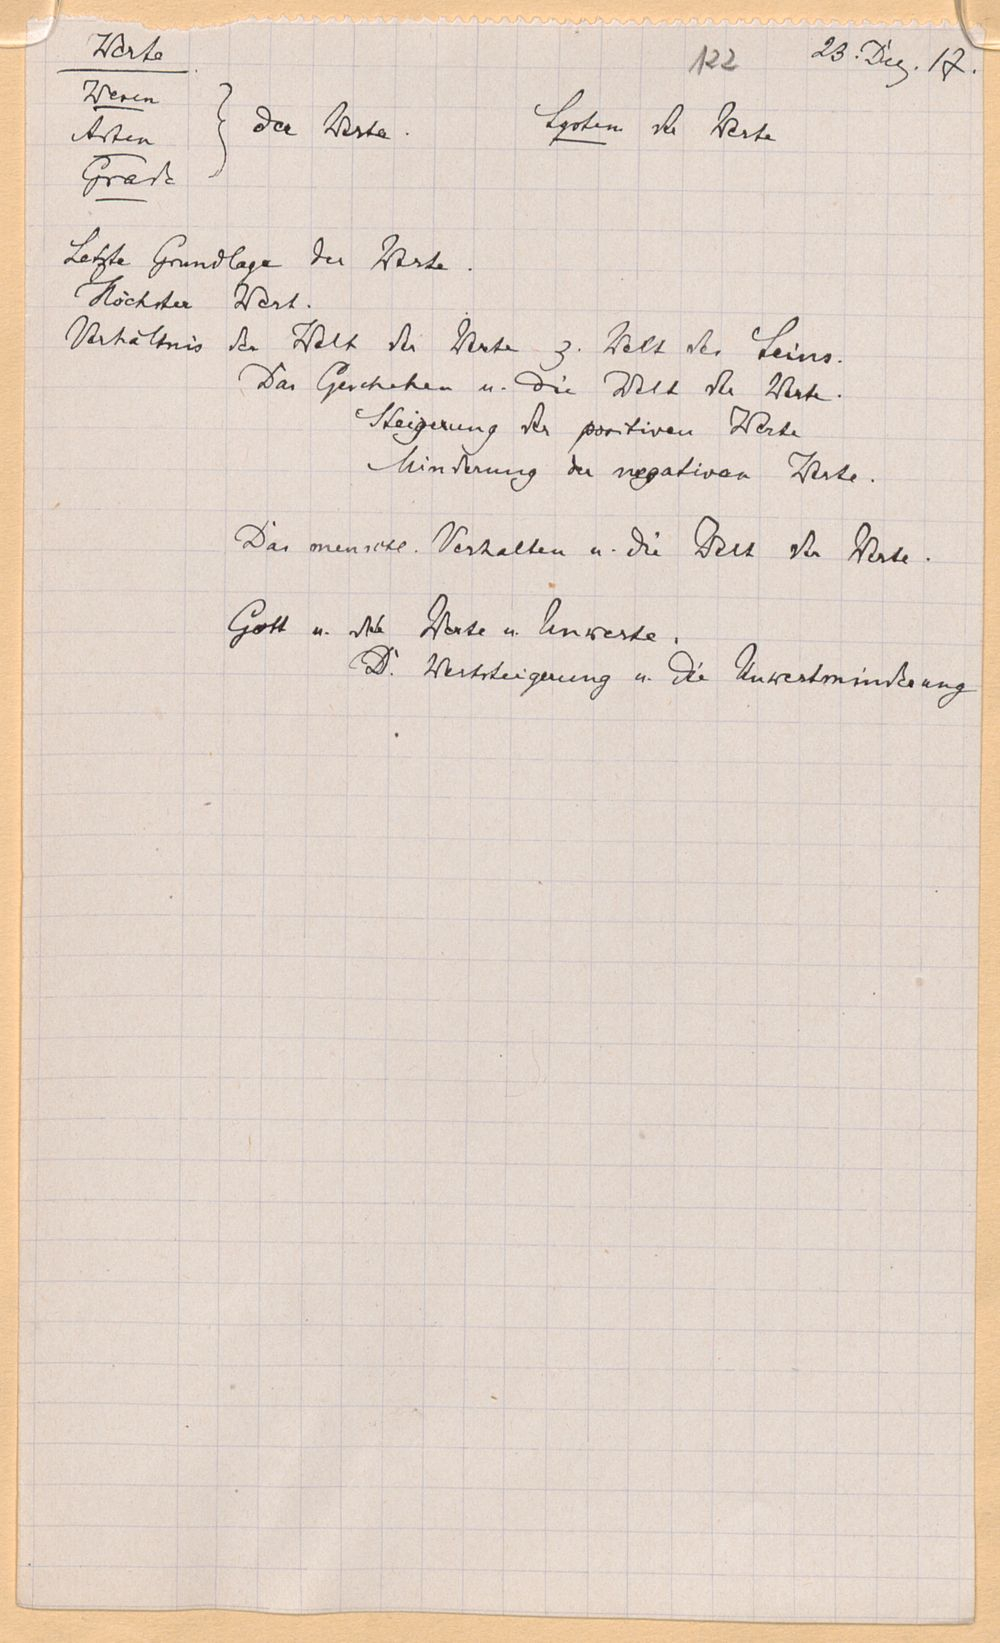 Werte
122
23. Dez. 17.
Wesen
Arten
Grade
der Werte.
System der Werte
Letzte Grundlage der Werte.
Höchster Wert.
Verhältnis der Welt der Werte z. Welt des Seins.
Das Geschehen u. die Welt der Werte.
Steigerung der positiven Werte
Minderung der negativen Werte.
Das menschl. Verhalten u. die Welt der Werte.
Gott u. die Werte u. Unwerte.
D. Wertsteigerung u. die Unwertminderung